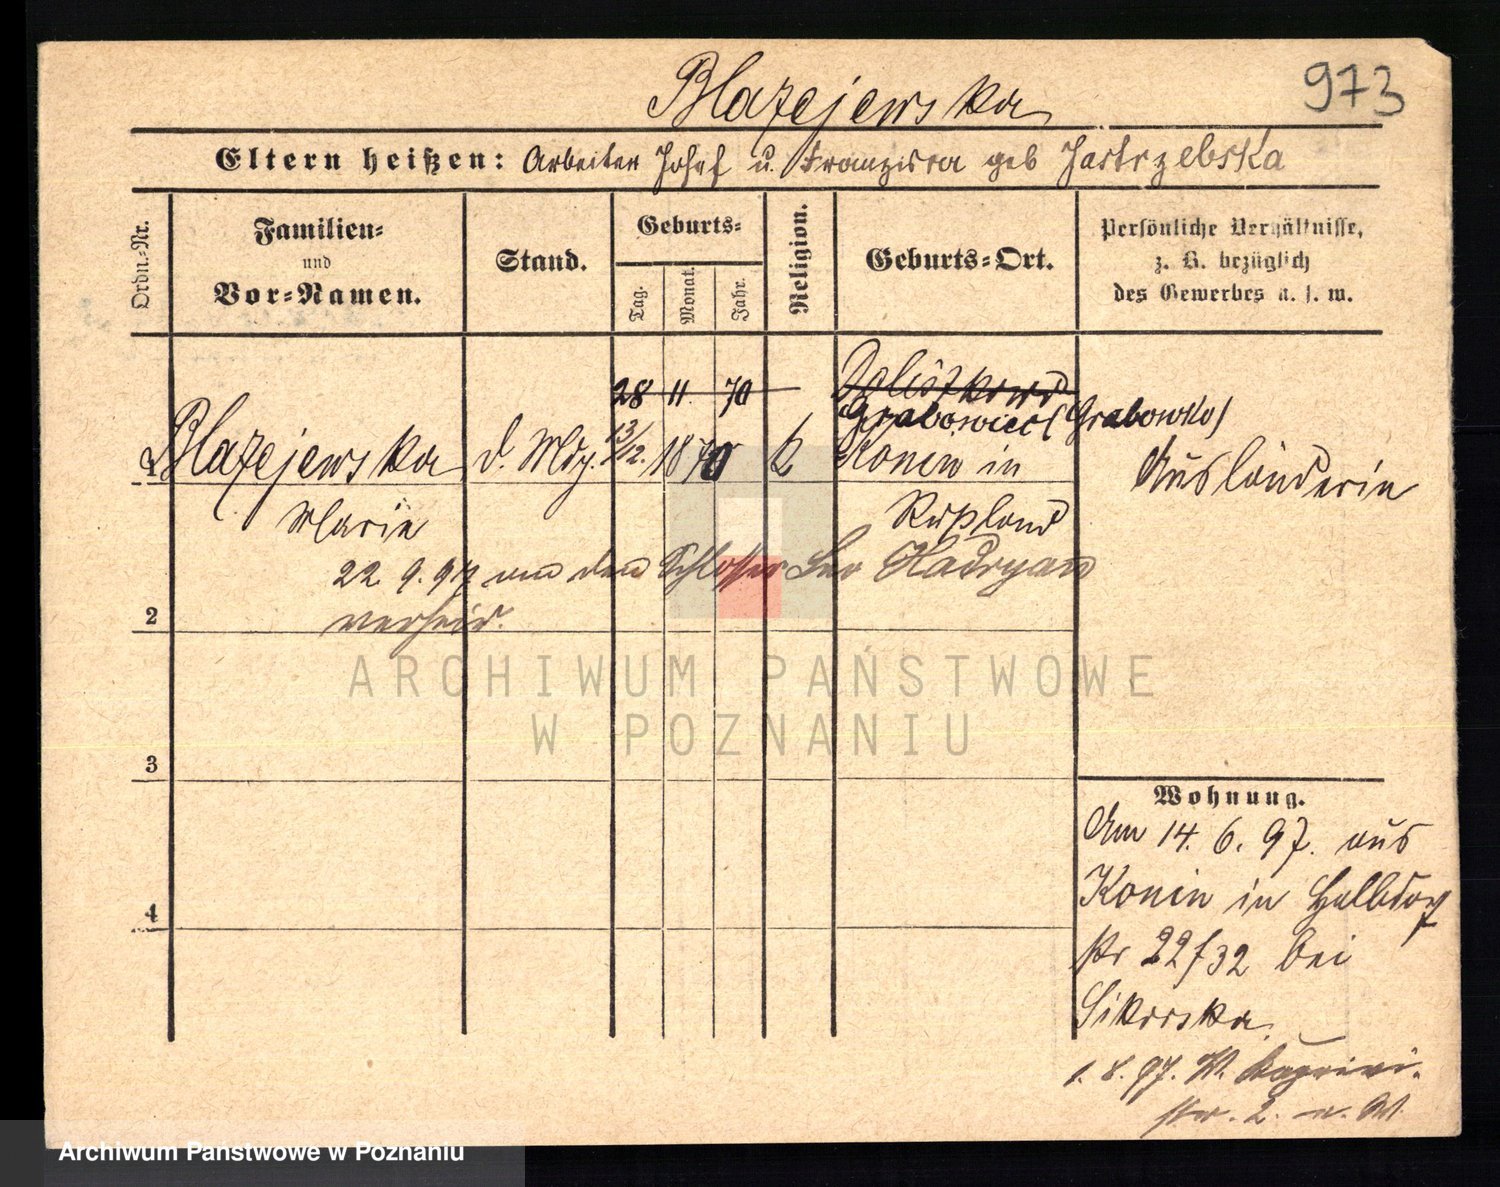 973
Blazejewska
Eltern heißen: Arbeiter Josef u. Franziska geb Jastrzebska
Ordn.-Nr.
Familien-
und
Vor-Namen.
Stand.
Geburts-
Tag.
Monat.
Jahr.
Religion.
Geburts-Ort.
Persönliche Verhältnisse,
z. B. bezüglich
des Gewerbes u. s. w.
28 11. 70
Grabowiec (Grabowko)
1 Blazejewska d. 13/12. 1870 k Konin in
Ausländerin
Marie Rußland
22. 9. 97 an den Schlosser Leo Hadryan
verheir.
2
3
4
ARCHIWUM PAŃSTWOWE
W POZNANIU
Wohnung.
Am 14. 6. 97. aus
Konin in Halbdorf
str 22/32 bei
Sikorska.
1. 8. 97. W. Kaprivi-
str. 2. n. W.
Archiwum Państwowe w Poznaniu